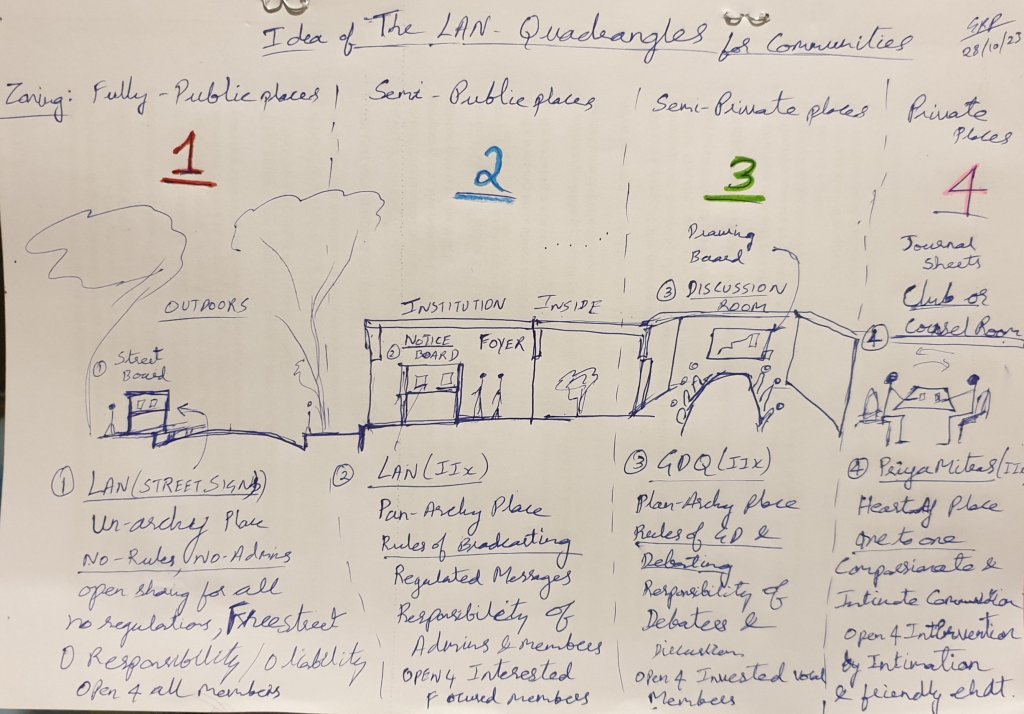 Idea of The LAN- Quadrangles for Communities
28/10/23
Zoning: Fully-Public places
Semi-Public places
Semi-Private places
Private Places
1
2
3
4
OUTDOORS
① Street Board
INSTITUTION
INSIDE
② NOTICE BOARD
FOYER
Drawing Board
③ DISCUSSION ROOM
Journal Sheets
Club or
④ Counsel Room
① LAN (STREET SIGNS)
Un-archy Place
No-Rules, No-Admins
open sharing for all
no regulations, Freestreet
0 Responsibility/0 liability
OPEN 4 all members
② LAN (IIx)
Pan-Archy Place
Rules of Broadcasting
Regulated Messages
Responsibility of
Admins & members
OPEN 4 Interested
Focused members
③ GDQ (IIx)
Plan-Archy place
Rules of GD &
Debating
Responsibility of
Debaters &
OPEN 4 Invested vocal
Members
④ PriyaMitras (II
Heart Place
One to one
Compassionate &
Intimate
OPEN 4 Intervention
by Intimation
& friendly